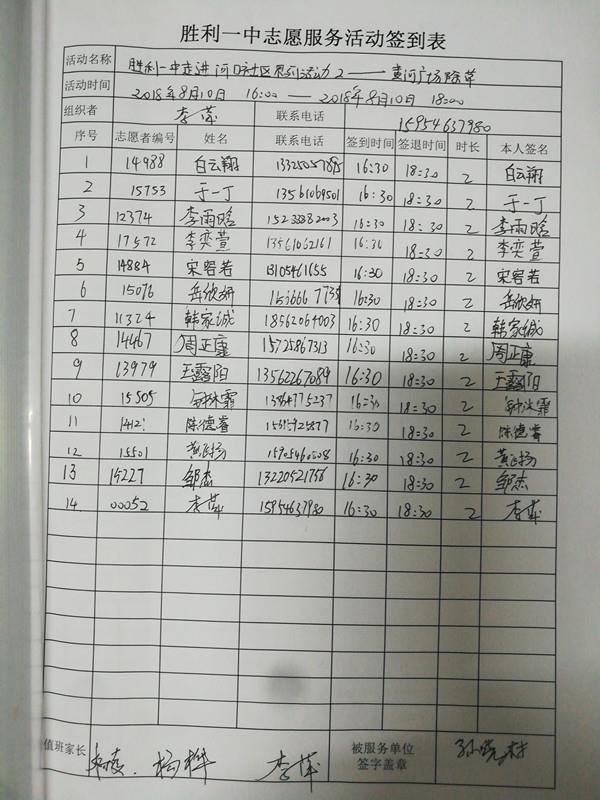 胜利一中志愿服务活动签到表
活动名称 胜利一中走进河口社区系列活动2——黄河广场除草
活动时间 2018年8月10日 16:00——2018年8月10日 18:00
组织者 李萍 联系电话 15954637980
序号 志愿者编号 姓名 联系电话 签到时间 签退时间 时长 本人签名
1 14988 白云翔 16:30 18:30 2 白云翔
2 15753 于一丁 13561069501 16:30 18:30 2 于一丁
3 12374 李雨晗 15233382003 16:30 18:30 2 李雨晗
4 17572 李奕萱 13561062161 16:30 18:30 2 李奕萱
5 14884 宋容若 13105461655 16:30 18:30 2 宋容若
6 15076 岳欣妍 16:30 18:30 2 岳欣妍
7 11324 韩家诚 18562064003 16:30 18:30 2 韩家诚
8 14467 周正康 15725867313 16:30 18:30 2 周正康
9 13979 王露阳 13562267089 16:30 18:30 2 王露阳
10 15505 16:30 18:30 2
11 陈德睿 16:30 18:30 2 陈德睿
12 15501 黄飞扬 15905460608 16:30 18:30 2 黄飞扬
13 15227 邹杰 13220521756 16:30 18:30 2 邹杰
14 00052 李萍 15954637980 16:30 18:30 2 李萍
值班家长 杨桦 李萍 被服务单位
签字盖章